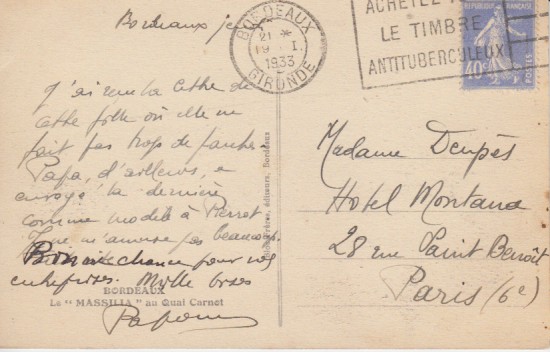 Bordeaux je
BORDEAUX
21 *
19 · I.
1933
GIRONDE
ACHETEZ
LE TIMBRE
ANTITUBERCULEUX
REPUBLIQUE FRANÇAISE
40c
POSTES
J'ai reçu la lettre de
cette folle où elle ne
fait pas trop de fautes
Papa, d'ailleurs, a
envoyé la dernière
comme modèle à Pierret
Je ne m'amuse pas beaucoup
Bonne chance pour vos
entreprises. Mille bises
BORDEAUX
Le "MASSILIA" au Quai Carnot
éditeurs, Bordeaux
Madame Despès
Hotel Montana
28 rue Saint Benoît
Paris (6e)